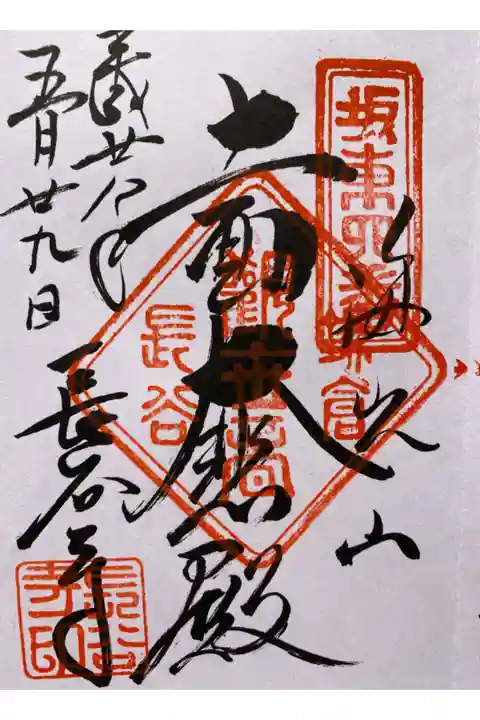 坂東四番
海光山
十一面大悲殿
鎌倉
観世音
長谷
平成廿八年
五月廿九日
長谷寺
長谷
寺印